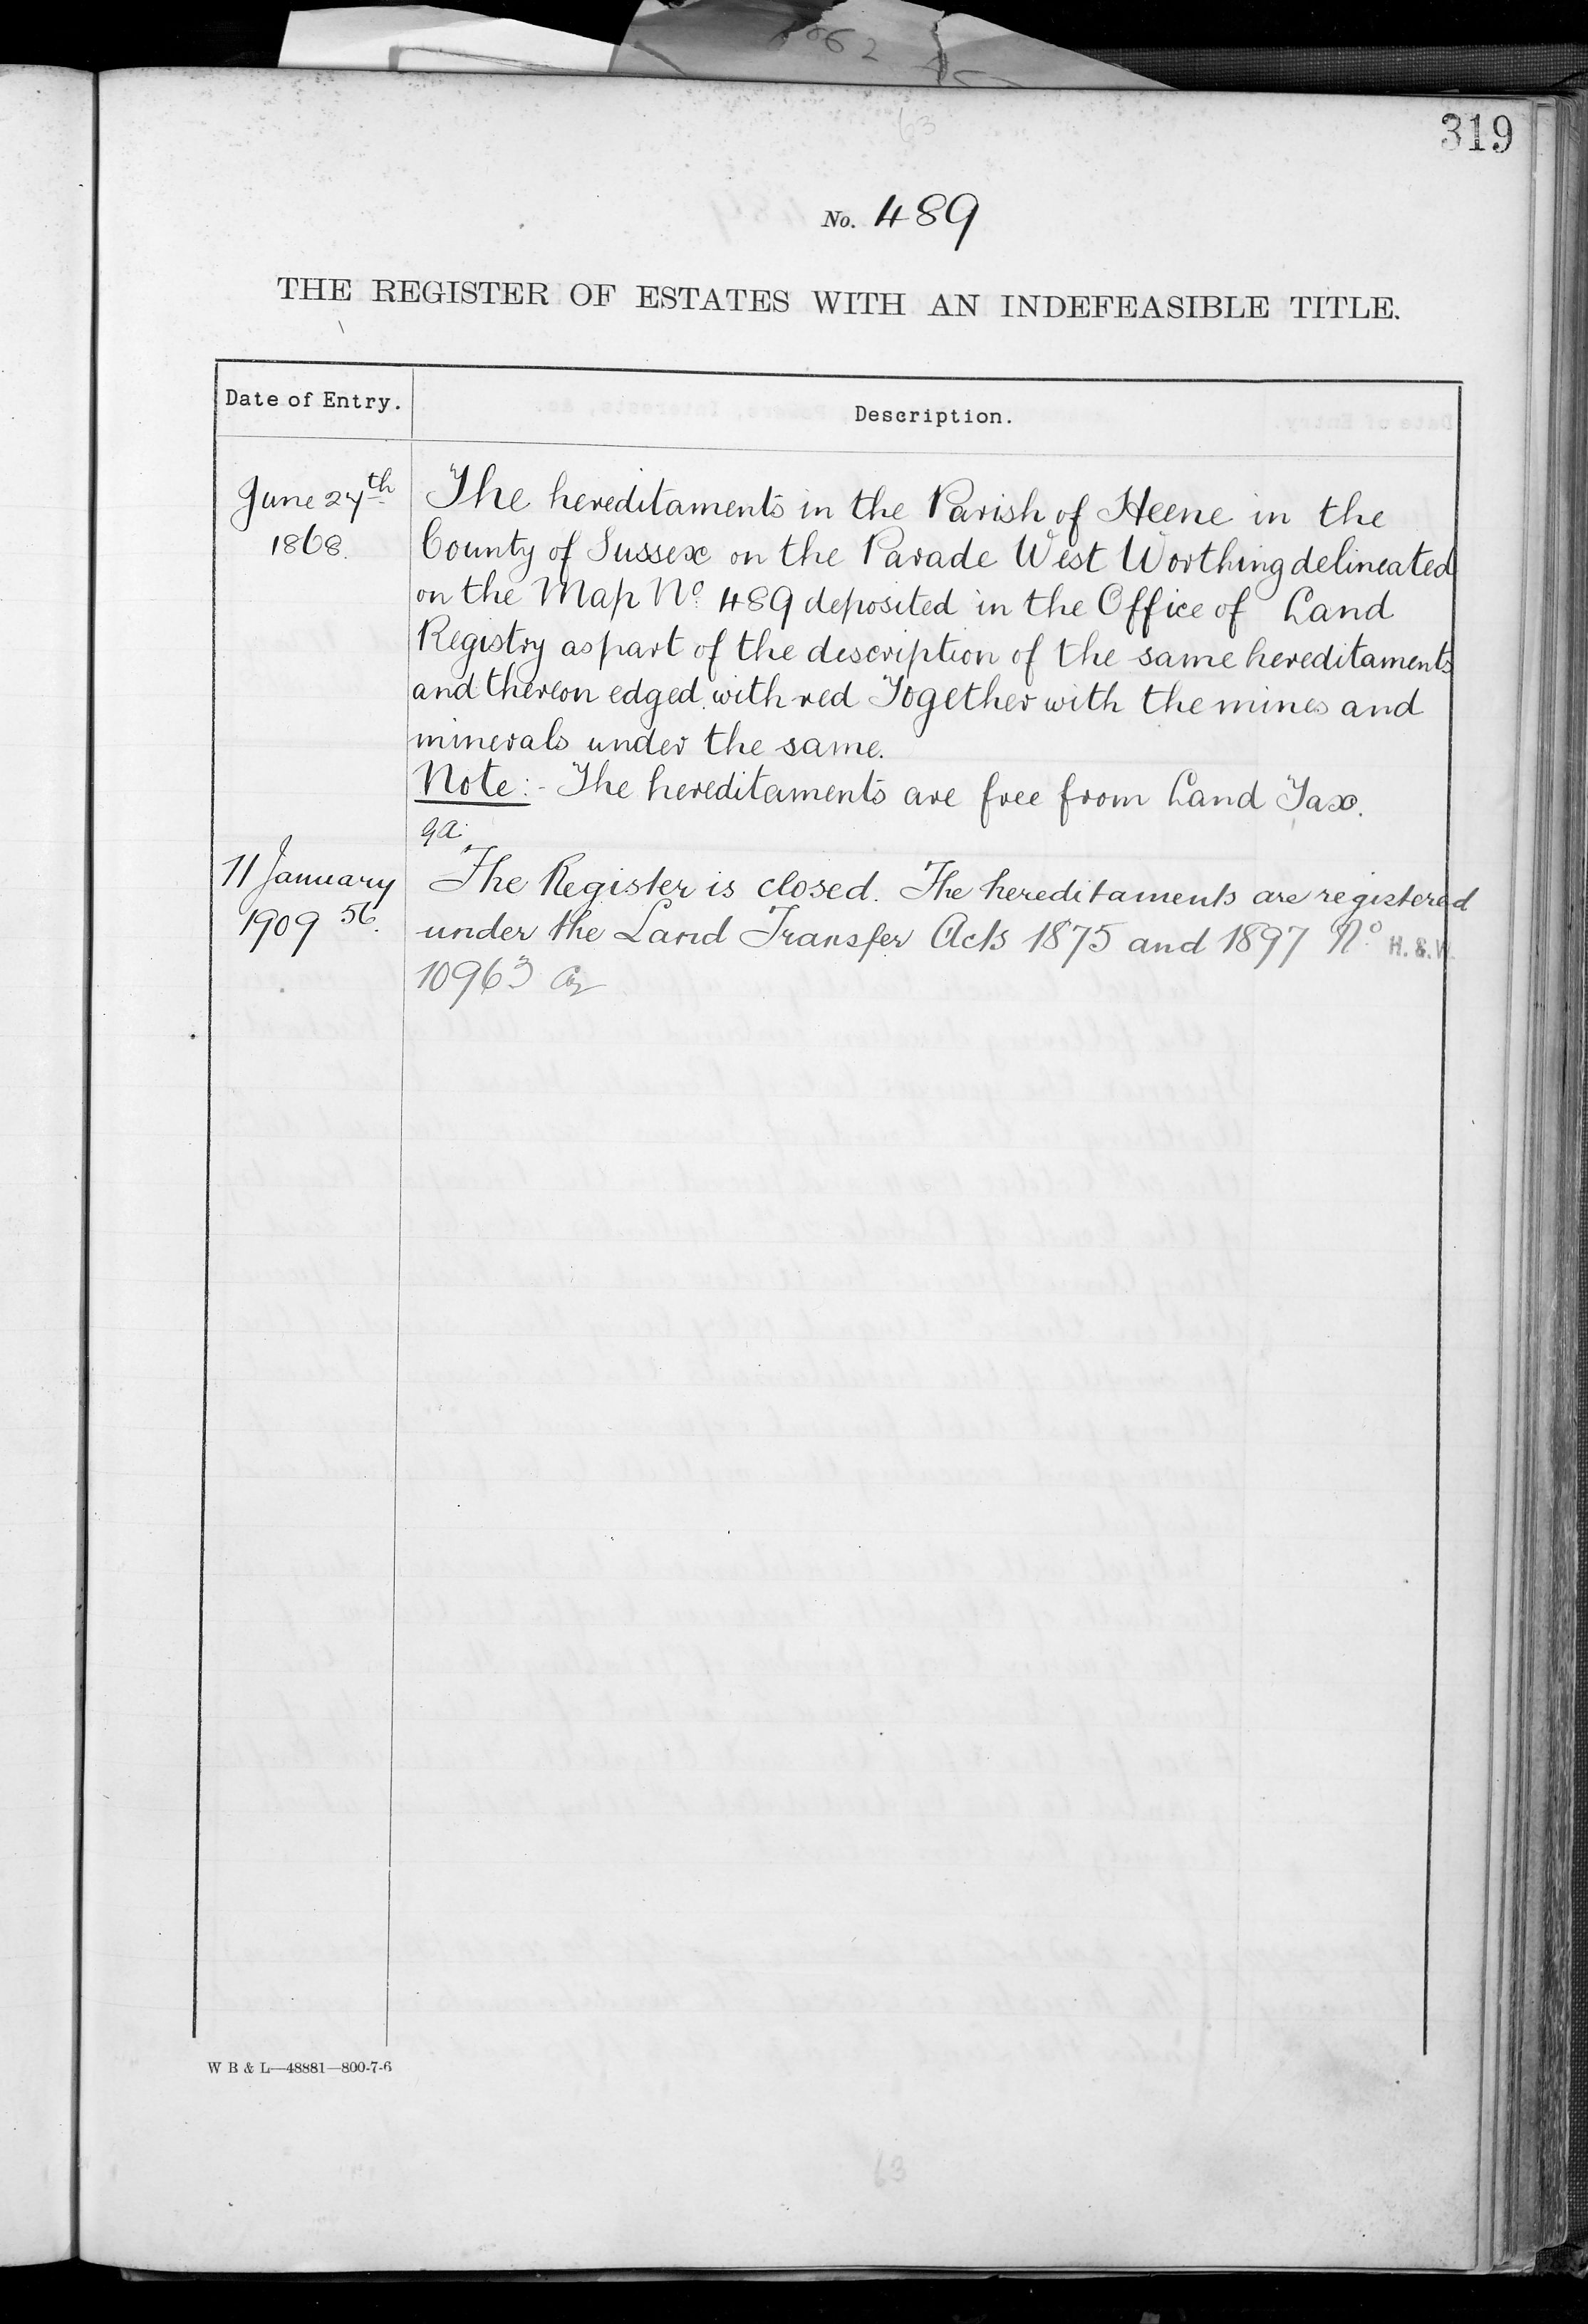 319
No. 489
THE REGISTER OF ESTATES WITH AN INDEFEASIBLE TITLE.
Date of Entry.
Description.
June 24th
1868.
The hereditaments in the Parish of Heene in the
County of Sussex on the Parade West Worthing delineated
on the Map No. 489 deposited in the Office of Land
Registry as part of the description of the same hereditaments
and thereon edged with red Together with the mines and
minerals under the same.
Note:- The hereditaments are free from Land Tax.
11 January
1909 56.
The Register is closed. The hereditaments are registered
under the Land Transfer Acts 1875 and 1897 No. H. & W.
10963
W B & L—48881—800-7-6
63